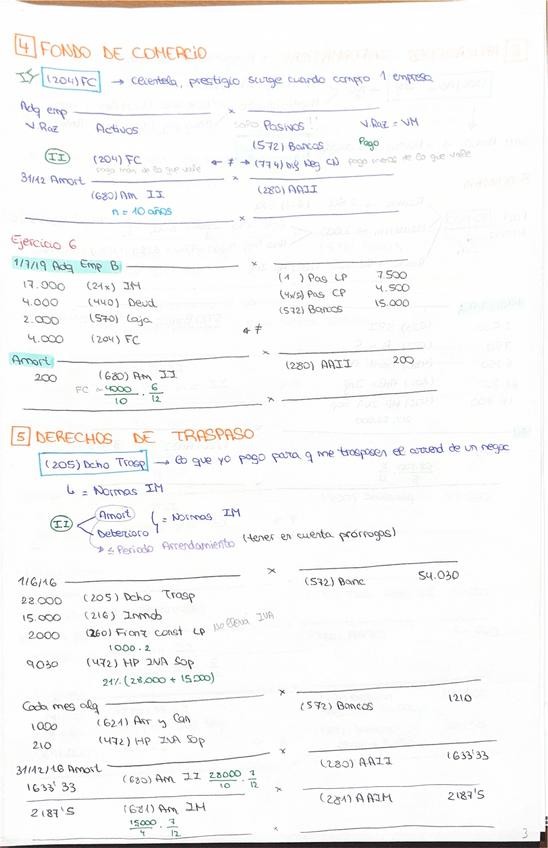 4 FONDO DE COMERCIO
(204) FC → clientela, prestigio surge cuando compro 1 empresa
Adq emp x
V. Raz Activos Pasivos !! V. Raz = VM
(572) Bancos Pago
II (204) FC ← ≠ → (774) Dif Neg CN pago menos de lo que vale
pago más de lo que vale
31/12 Amort x
(680) Am II (280) AAII
n = 10 años
x
Ejercicio 6
1/7/19 Adq Emp B x
17.000 (21x) IM (1 ) Pas LP 7.500
4.000 (440) Deud (4x/5) Pas CP 4.500
2.000 (570) Caja (572) Bancos 15.000
4.000 (204) FC ← ≠
Amort x
200 (680) Am II (280) AAII 200
FC = 4000/10 · 6/12
x
5 DERECHOS DE TRASPASO
(205) Dcho Trasp → lo que yo pago para q me traspasen el arrend de un negoc
↳ = Normas IM
II Amort
Deterioro = Normas IM
≤ Periodo Arrendamiento (tener en cuenta prórrogas)
1/6/16 x
28.000 (205) Dcho Trasp (572) Banc 54.030
15.000 (216) Inmob
2000 (260) Fianz const LP No lleva IVA
1000 · 2
9030 (472) HP IVA Sop
21% (28.000 + 15.000)
Cada mes alq x
1000 (621) Arr y Can (572) Bancos 1210
210 (472) HP IVA Sop
31/12/16 Amort x
1633'33 (680) Am II 28000/10 · 7/12 (280) AAII 1633'33
x
2187'5 (681) Am IM (281) AAIM 2187'5
15000/4 · 7/12
x
3